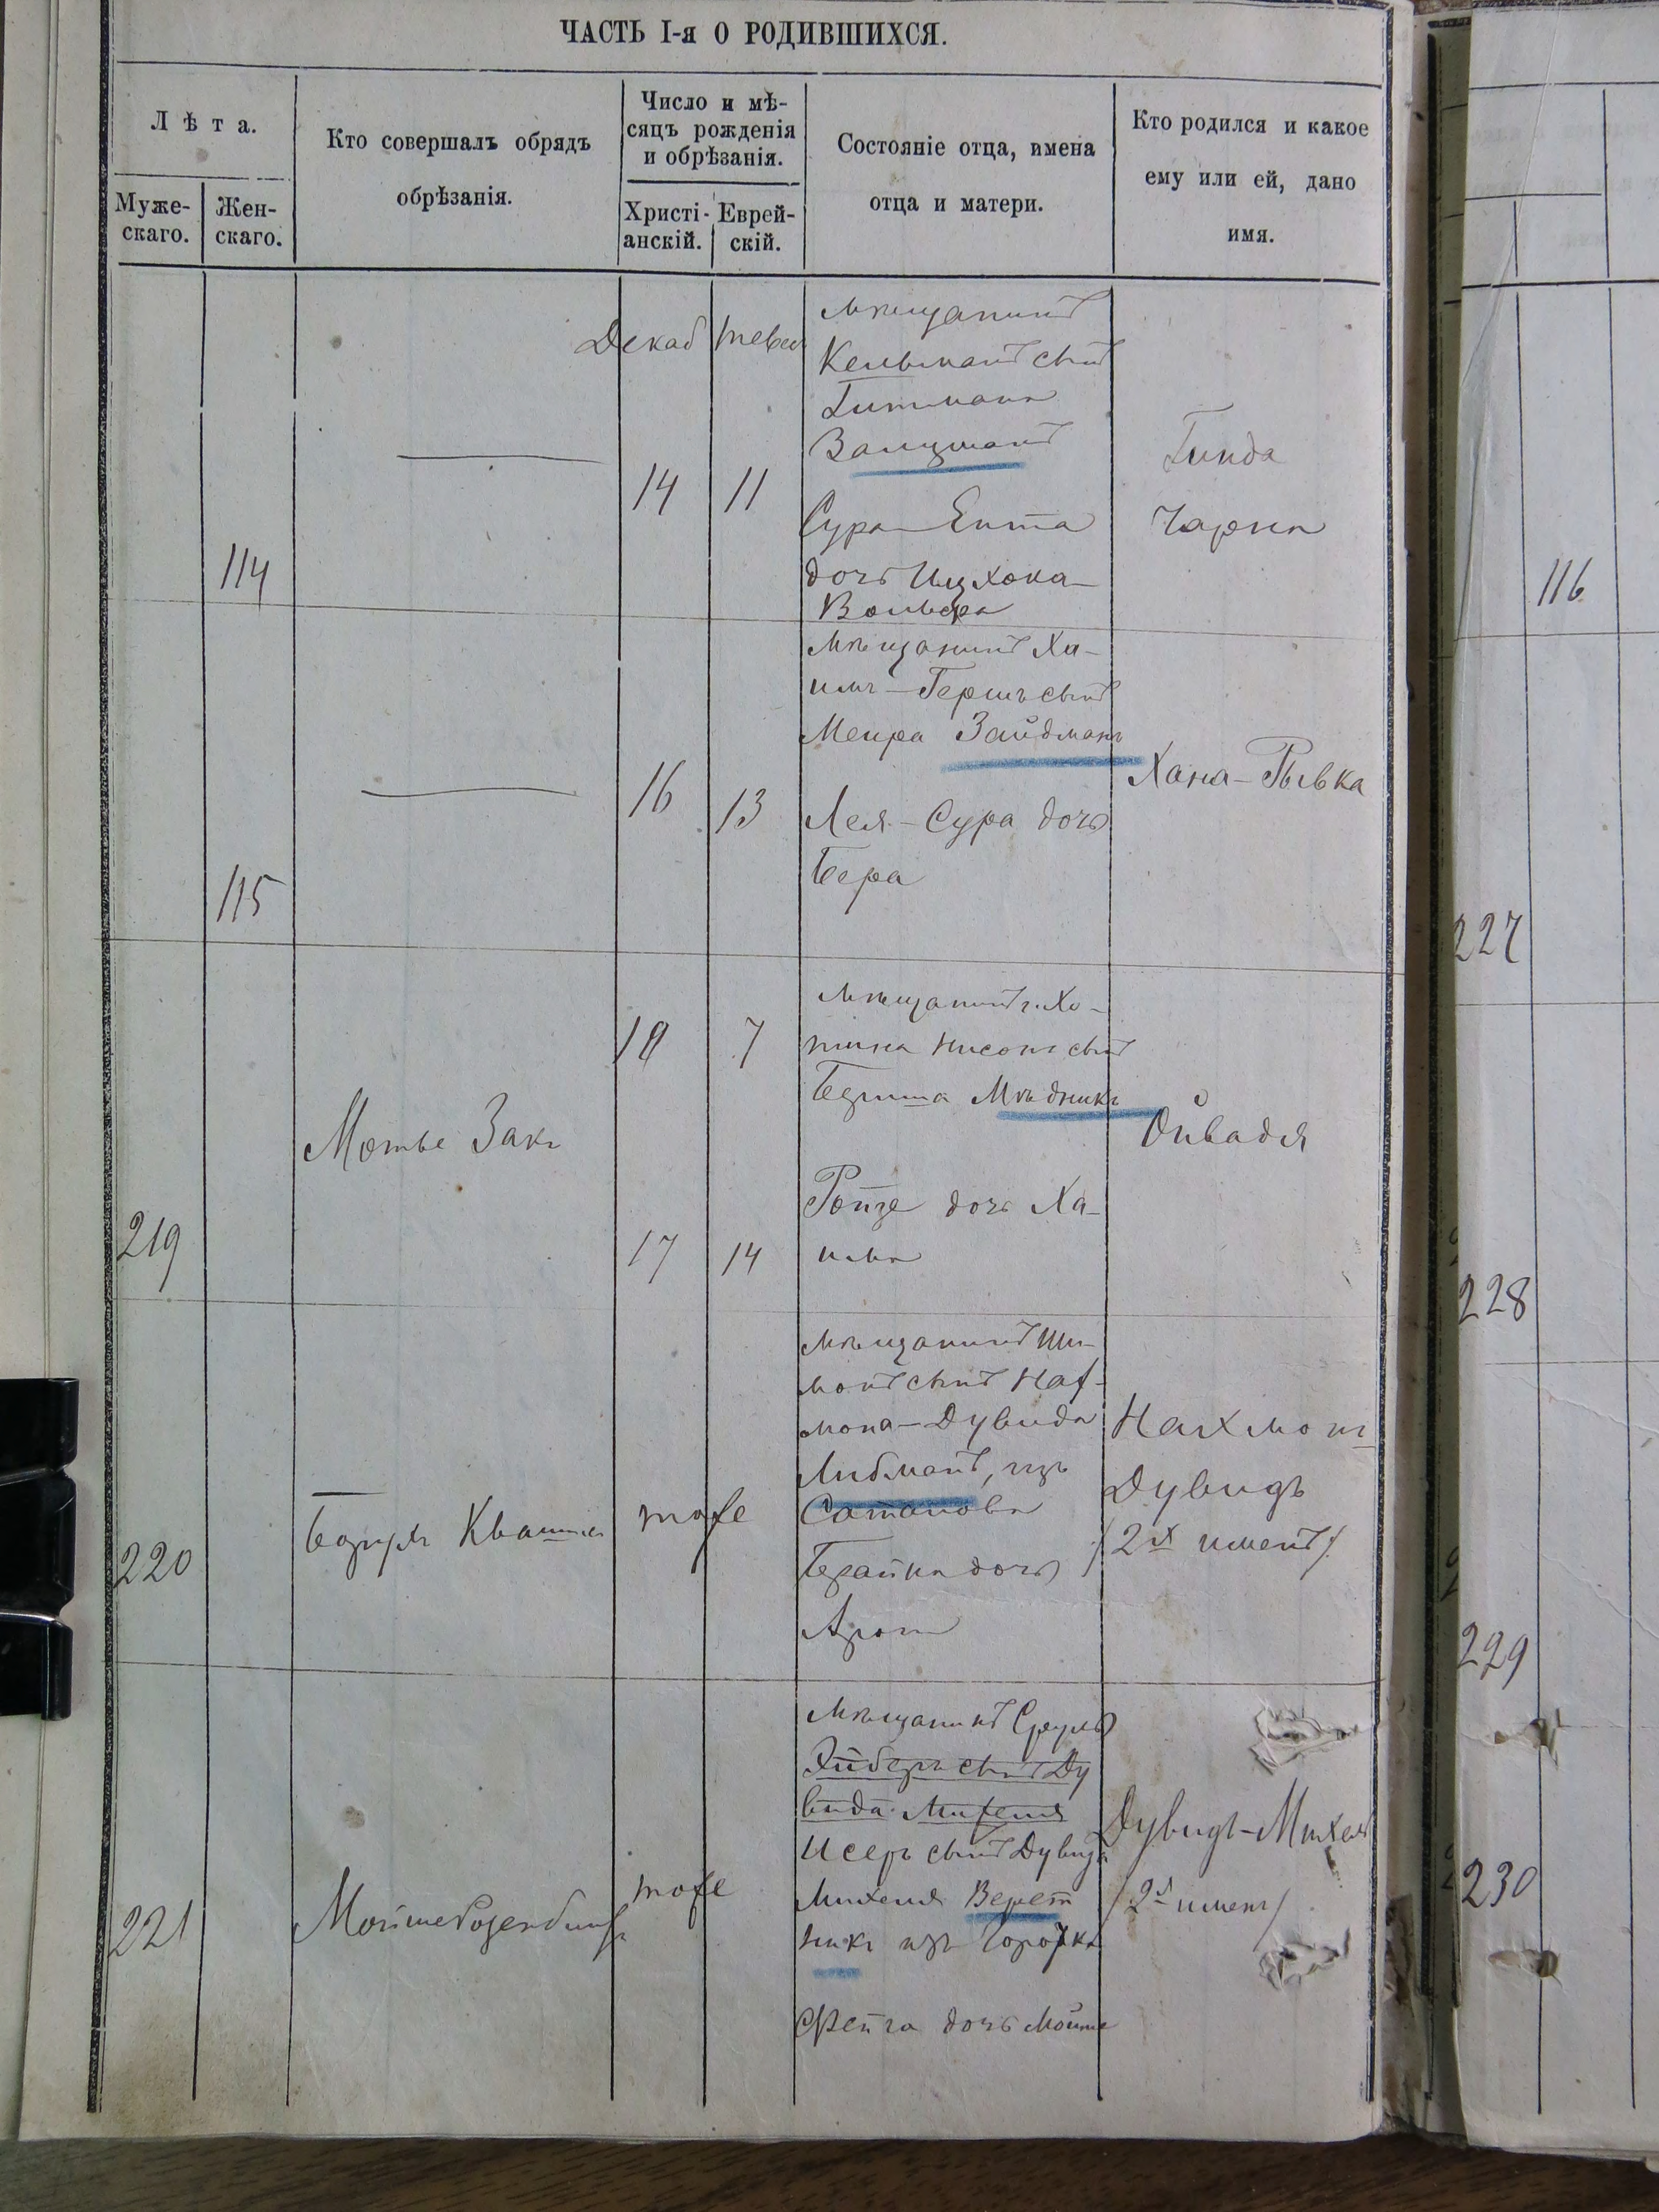 ЧАСТЬ I-я О РОДИВШИХСЯ.
Лѣта.
Муже-
скаго.
Жен-
скаго.
Кто совершалъ обрядъ
обрѣзанія.
Число и мѣ-
сяцъ рожденія
и обрѣзанія.
Христі-
анскій.
Еврей-
скій.
Состояніе отца, имена
отца и матери.
Кто родился и какое
ему или ей, дано
имя.
114
Декаб
14
11
мѣщанинъ
Кельманъ сынъ
Гитмана
Залцманъ
Сура Ента
дочь Ицхока-
Вольфа
Гинда
Чарна
115
16
13
мѣщанинъ Ха-
имъ-Гершъ сынъ
Меира Зайдманъ
Лея-Сура дочь
Бера
Хана-Рывка
219
Мотье Закъ
10
7
17
14
мѣщанинъ г. Хо-
тина Нисонъ сынъ
Мѣдникъ
дочь Ха-
има
Ойвадя
220
тоже
мѣщанинъ Ши-
монъ сынъ Нах-
мона-Дувида
Либманъ, изъ
Сатанова
Бзайна дочь
Арон
Нахмонъ
Дувидъ
/2х именъ/
221
Мойше Розенблитъ
тоже
мѣщанинъ Сруль
сынъ Ду
вида Михеля
Исеръ сынъ Дувида
Михеля Верет
никъ изъ Городка
Фейга дочь Мойше
Дувидъ-Михель
/2х именъ/
116
227
228
229
230